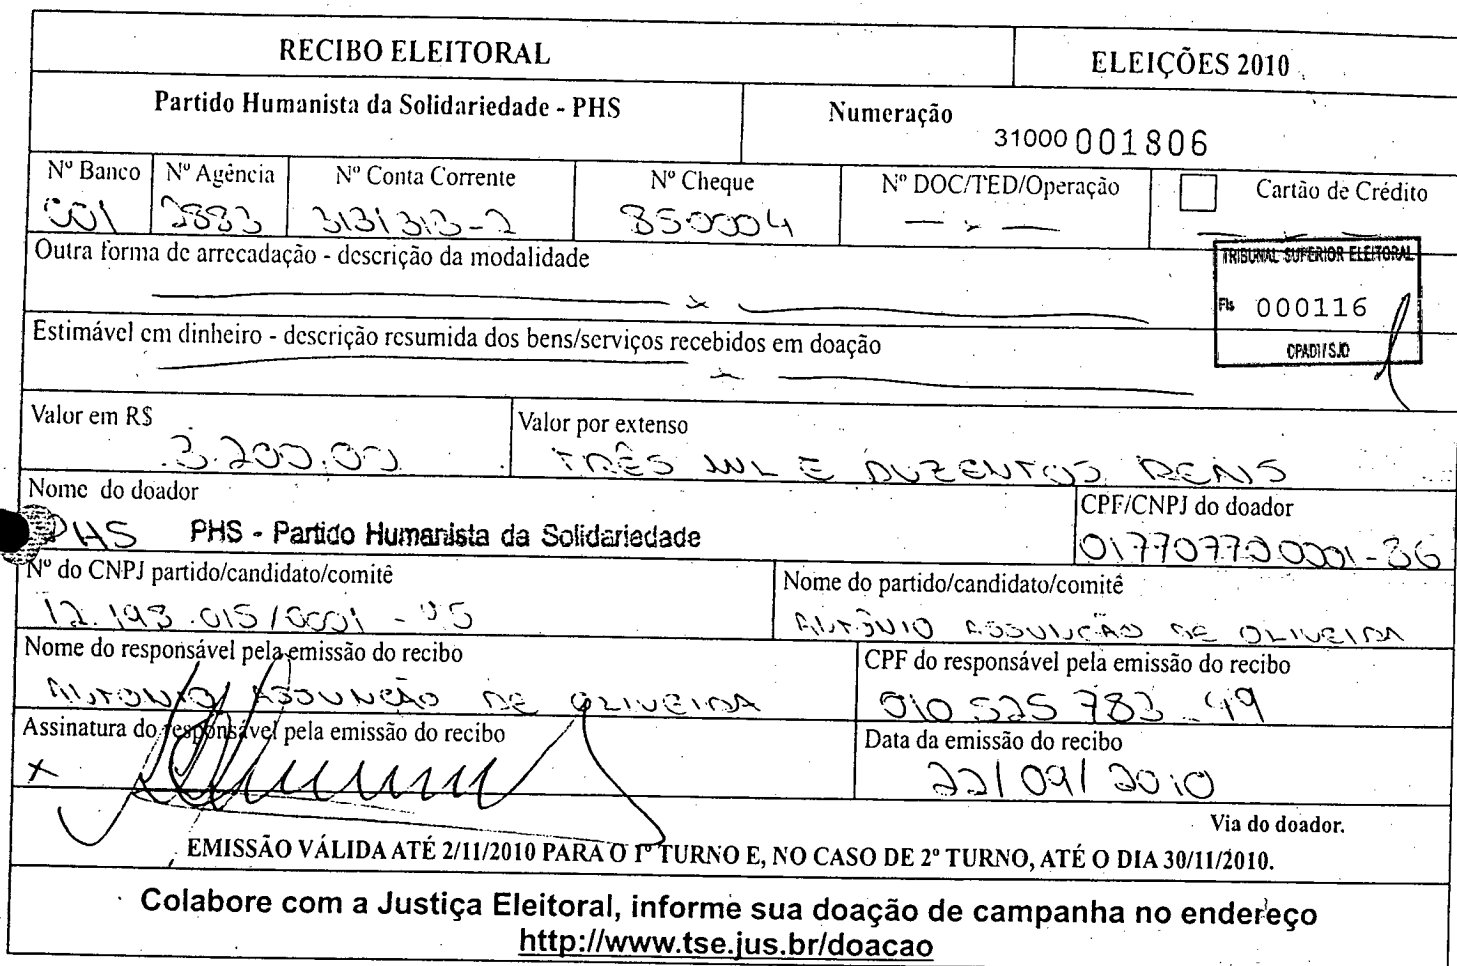 RECIBO ELEITORAL
ELEIÇÕES 2010
Partido Humanista da Solidariedade - PHS
Numeração
31000 001806
Nº Banco Nº Agência Nº Conta Corrente Nº Cheque Nº DOC/TED/Operação Cartão de Crédito
001 3883 3131313-2 850004 - x -
Outra forma de arrecadação - descrição da modalidade
x
TRIBUNAL SUPERIOR ELEITORAL
Fls 000116
CPADI/SJD
Estimável em dinheiro - descrição resumida dos bens/serviços recebidos em doação
x
Valor em R$ Valor por extenso
3.200,00 TRÊS MIL E DUZENTOS REAIS
Nome do doador CPF/CNPJ do doador
PHS PHS - Partido Humanista da Solidariedade 017707720001-36
Nº do CNPJ partido/candidato/comitê Nome do partido/candidato/comitê
12.193.015/0001 ANTÔNIO ASSUNÇÃO DE OLIVEIRA
Nome do responsável pela emissão do recibo CPF do responsável pela emissão do recibo
ANTONIO ASSUNÇÃO DE OLIVEIRA 010 525 783 - 49
Assinatura do responsável pela emissão do recibo Data da emissão do recibo
x 22/09/2010
Via do doador.
EMISSÃO VÁLIDA ATÉ 2/11/2010 PARA O 1º TURNO E, NO CASO DE 2º TURNO, ATÉ O DIA 30/11/2010.
Colabore com a Justiça Eleitoral, informe sua doação de campanha no endereço
http://www.tse.jus.br/doacao